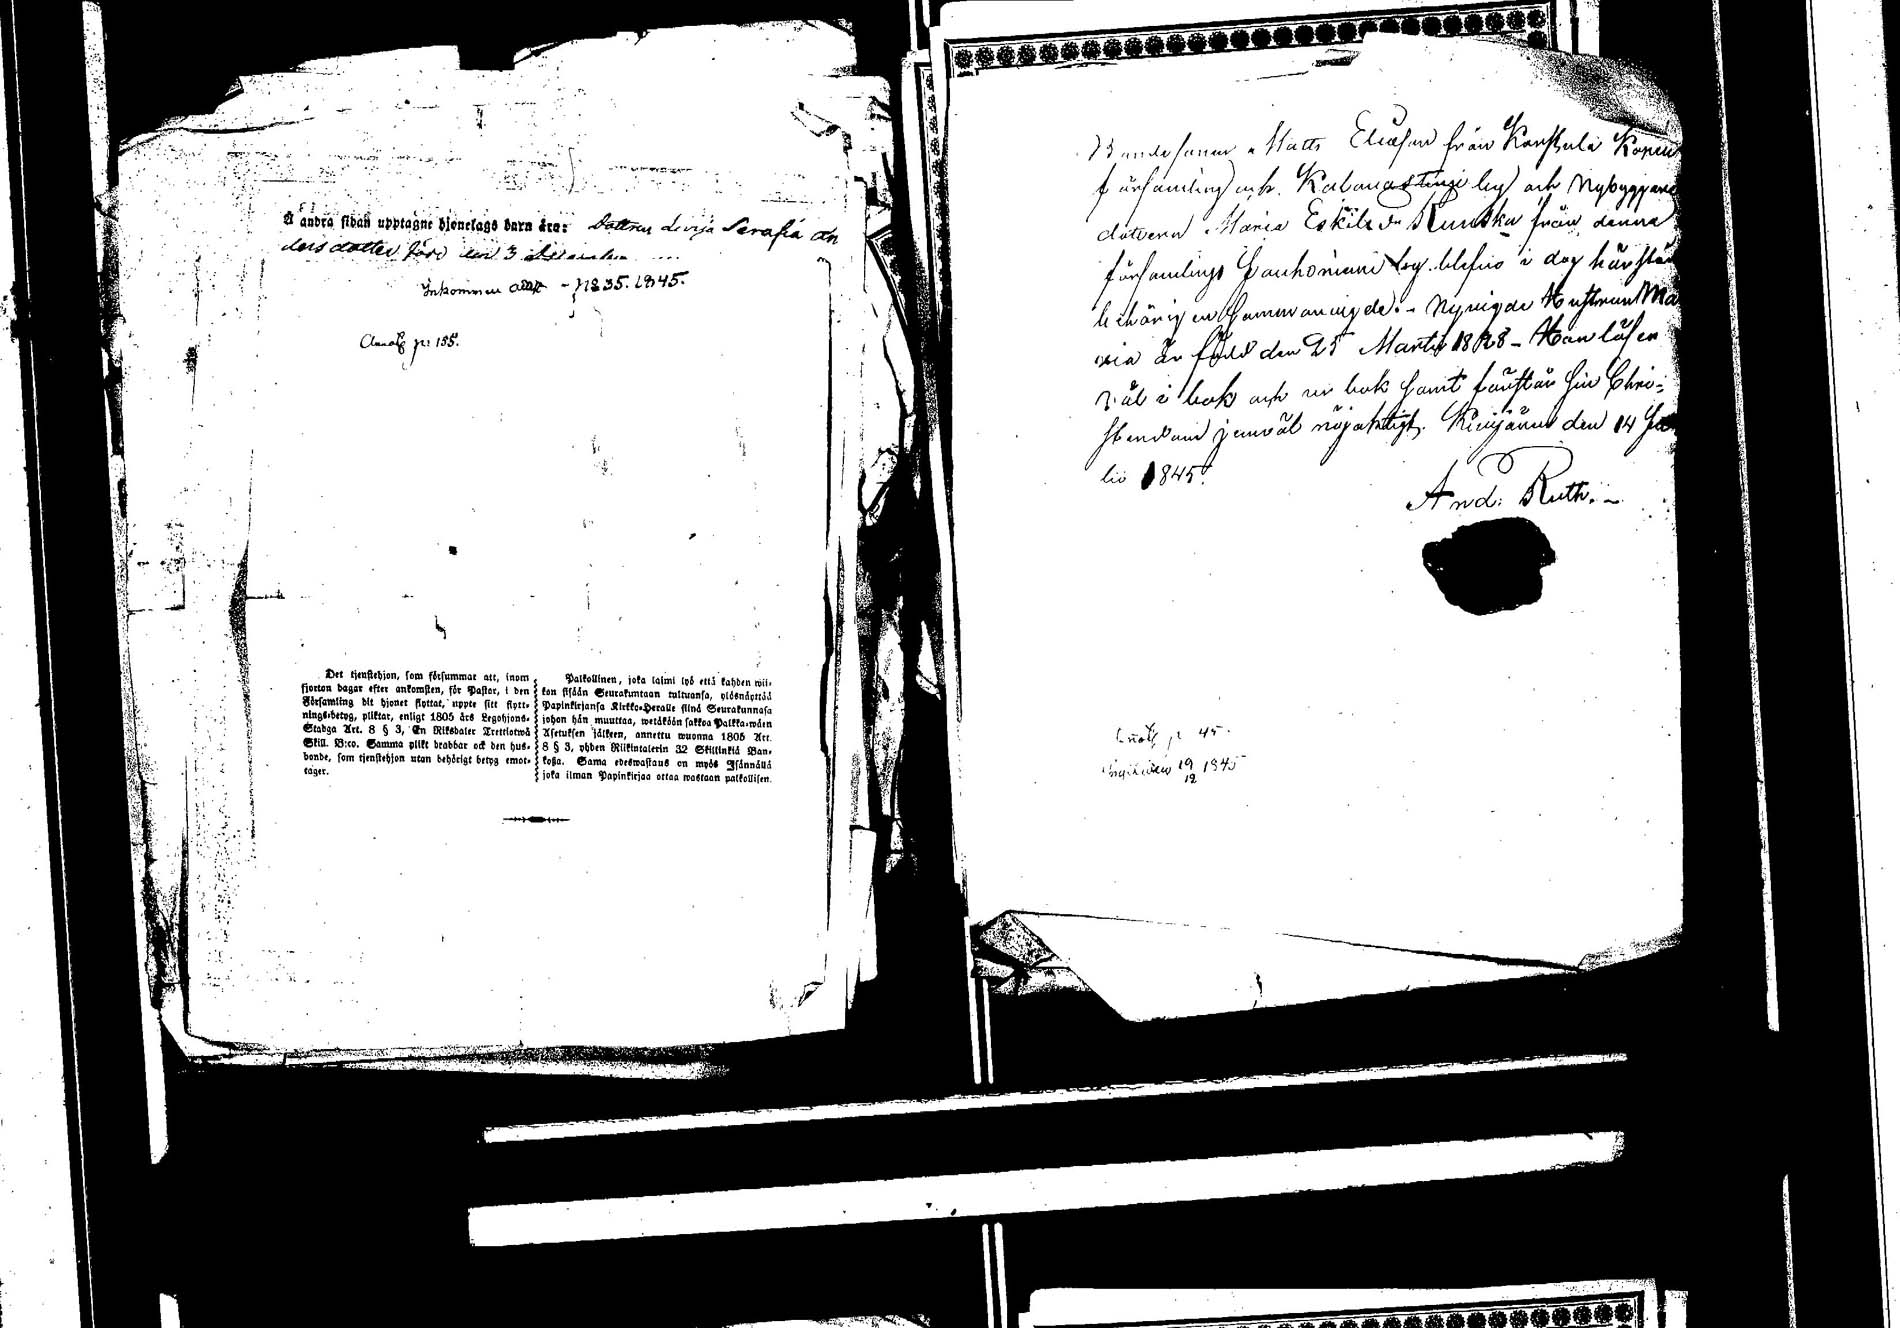 Å andra sidan upptagne hjonelags barn äro: Dottren Lovisa Serafia An
dersdotter född den 3
Inkommen 1835. 1845.
Annot. p: 155.
Det tjenstehjon, som försummar att, inom
fjorton dagar efter ankomsten, för Pastor, i den
Församling dit hjonet flyttat, uppte sitt flytt-
nings-betyg, pliktar, enligt 1805 års Legohjons-
Stadga Art. 8 § 3, En Riksdaler Trettiotwå
Skill. B:co. Samma plikt drabbar ock den hus-
bonde, som tjenstehjon utan behörigt betyg emot-
tager.
Palkollinen, joka laimi lyö että kahden wii-
kon sisään Seurakuntaan tultuansa, ylösnäyttää
Papinkirjansa Kirkko-Heralle siinä Seurakunnasa
johon hän muuttaa, wetäköön sakkoa Palkka-wäen
Asetuksen jälkeen, annettu wuonna 1805 Art.
8 § 3, yhden Riikintalerin 32 Skillinkiä Ban-
kosa. Sama edeswastaus on myös Isännällä
joka ilman Papinkirjaa ottaa wastaan palkollisen.
Bondesonen Matts Eliasson från Karstula Kapell
församling och by och Nybyggare
dottern Maria Eskilsdr Runska från denna
församlings by blefvo i dag härstädes
behörigen sammanvigde. - Nyvigda Hustrun Ma
ria är född den 25 Martii 1828 - Hon läser
väl i bok och ur bok samt förstår sin Chri-
stendom jemväl nöjaktigt. Kivijärvi den 14 Ju
lii 1845.
And: Ruth. -
Annot. p 45.
19/12 1845